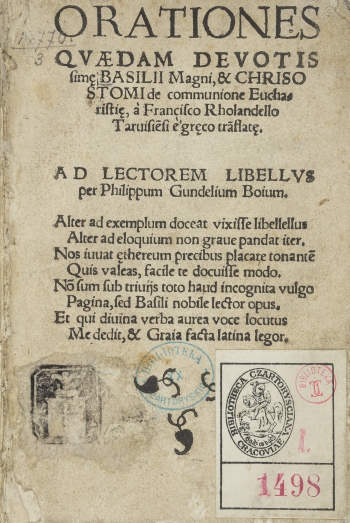 ORATIONES
QVÆDAM DEVOTIS
simę BASILII Magni, & CHRISO
STOMI de communione Eucha-
ristię, à Francisco Rholandello
Taruisiēsi è gręco trāslatę.
AD LECTOREM LIBELLVS
per Philippum Gundelium Boium.
Alter ad exemplum doceat vixisse libellellus
Alter ad eloquium non graue pandat iter.
Nos iuuat ęthereum precibus placare tonantē
Quis valeas, facile te docuisse modo.
Nō sum sub triuijs toto haud incognita vulgo
Pagina, sed Basili nobile lector opus.
Et qui diuina verba aurea voce locutus
Me dedit, & Graia facta latina legor.
BIBLIOTEKA
CZARTORYSKICH
BIBLIOTHECA CZARTORYSCIANA
CRACOVIAE
BIBLIOTEKA
II
I.
1498